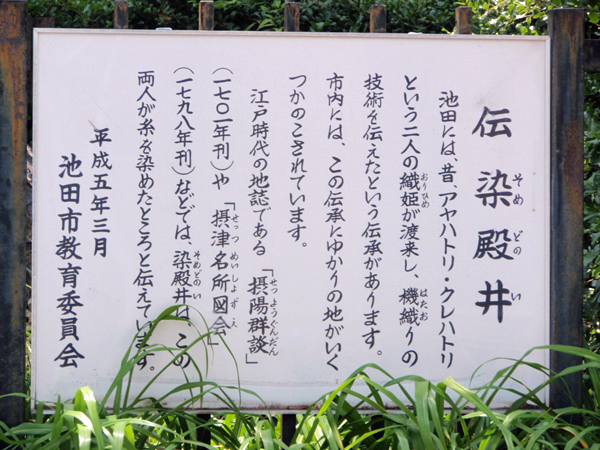 伝染殿井
池田には、昔、アヤハトリ・クレハトリ
という二人の織姫が渡来し、機織りの
技術を伝えたという伝承があります。
市内には、この伝承にゆかりの地がいく
つかのこされています。
江戸時代の地誌である「摂陽群談」
(一七〇一年刊)や「摂津名所図会」
(一七九八年刊)などでは、染殿井は、この
両人が糸を染めたところと伝えています。
平成五年三月
池田市教育委員会